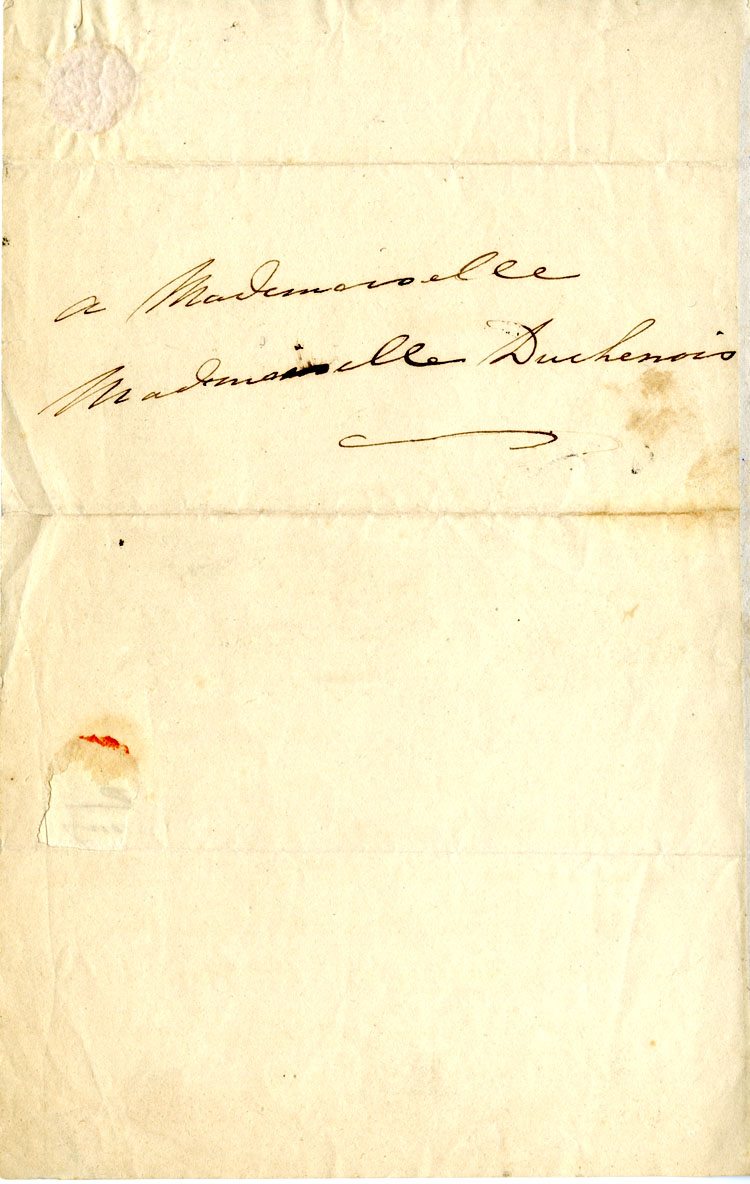 a Mademoiselle
Mademoiselle Duchenois